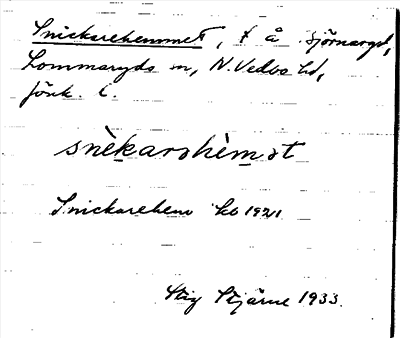 Snickarehemmet, t å Sjörnaryd,
Lommaryds sn, N. Vedbo hd,
Jönk. l.
snèkarohèmət
Snickarehem kb 1921
Stig Stjärne 1933.